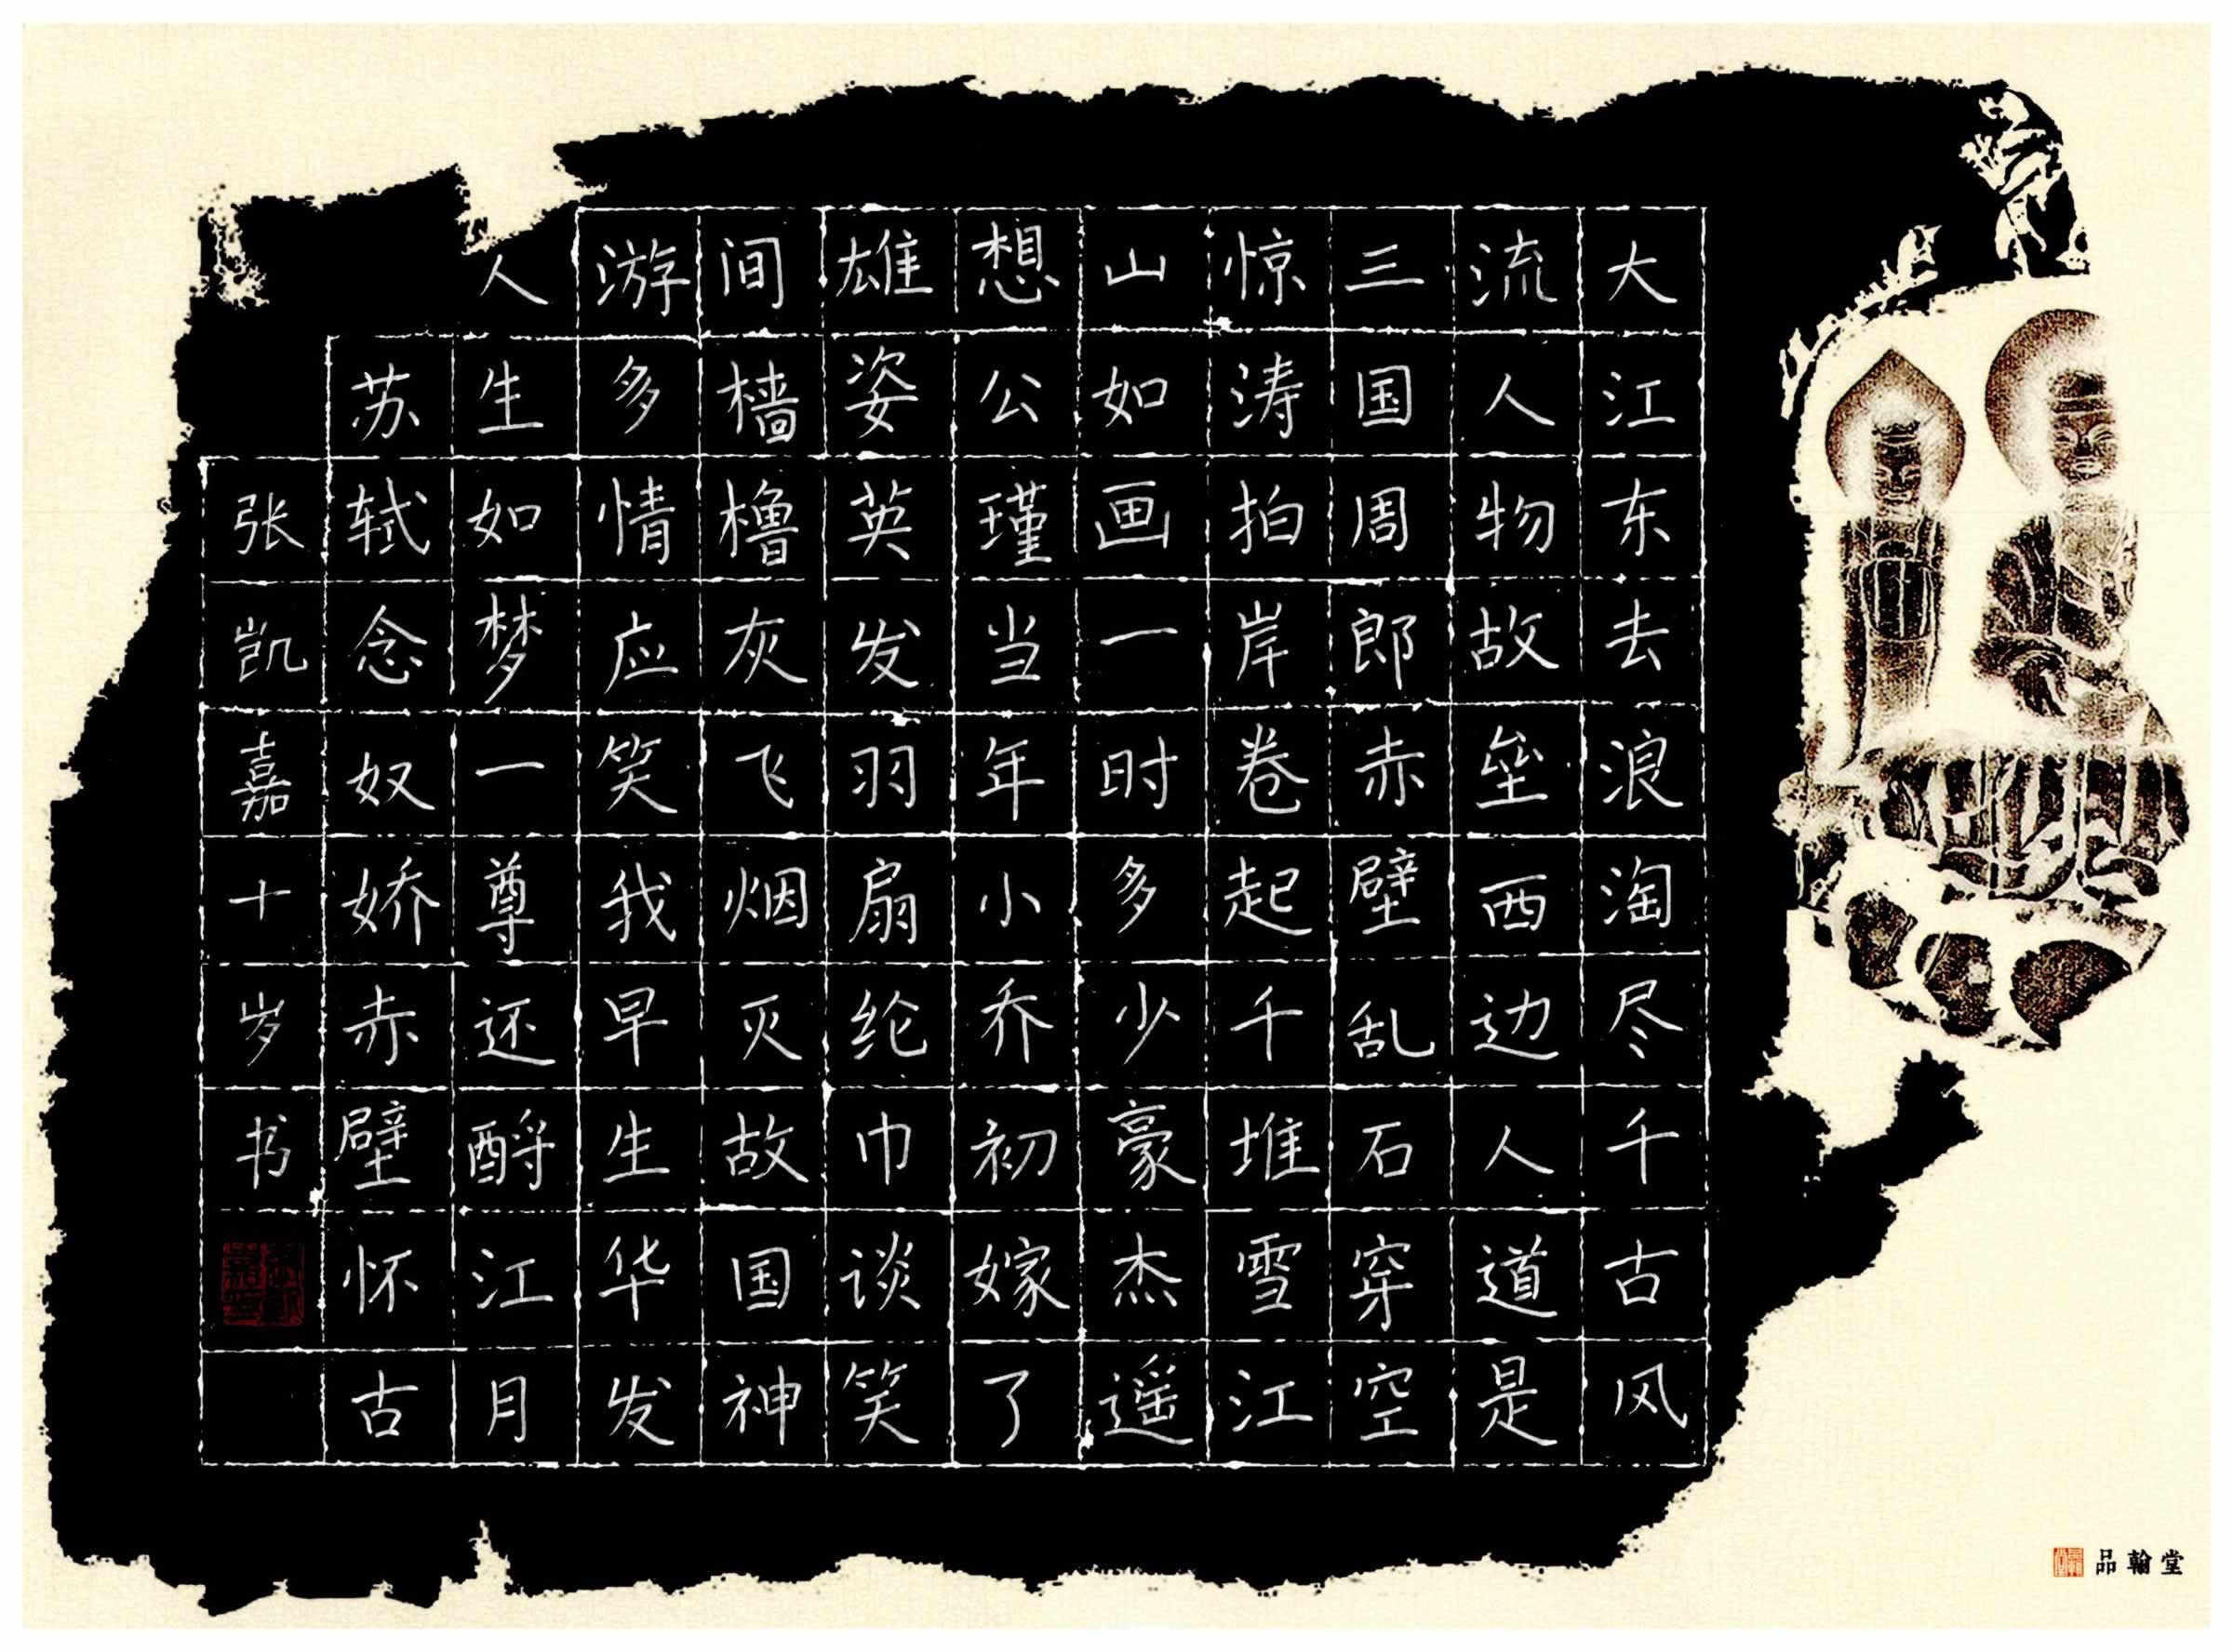 大江东去浪淘尽千古风
流人物故垒西边人道是
三国周郎赤壁乱石穿空
惊涛拍岸卷起千堆雪江
山如画一时多少豪杰遥
想公瑾当年小乔初嫁了
雄姿英发羽扇纶巾谈笑
间樯橹灰飞烟灭故国神
游多情应笑我早生华发
人生如梦一尊还酹江月
苏轼念奴娇赤壁怀古
张凯嘉十岁书
品翰堂